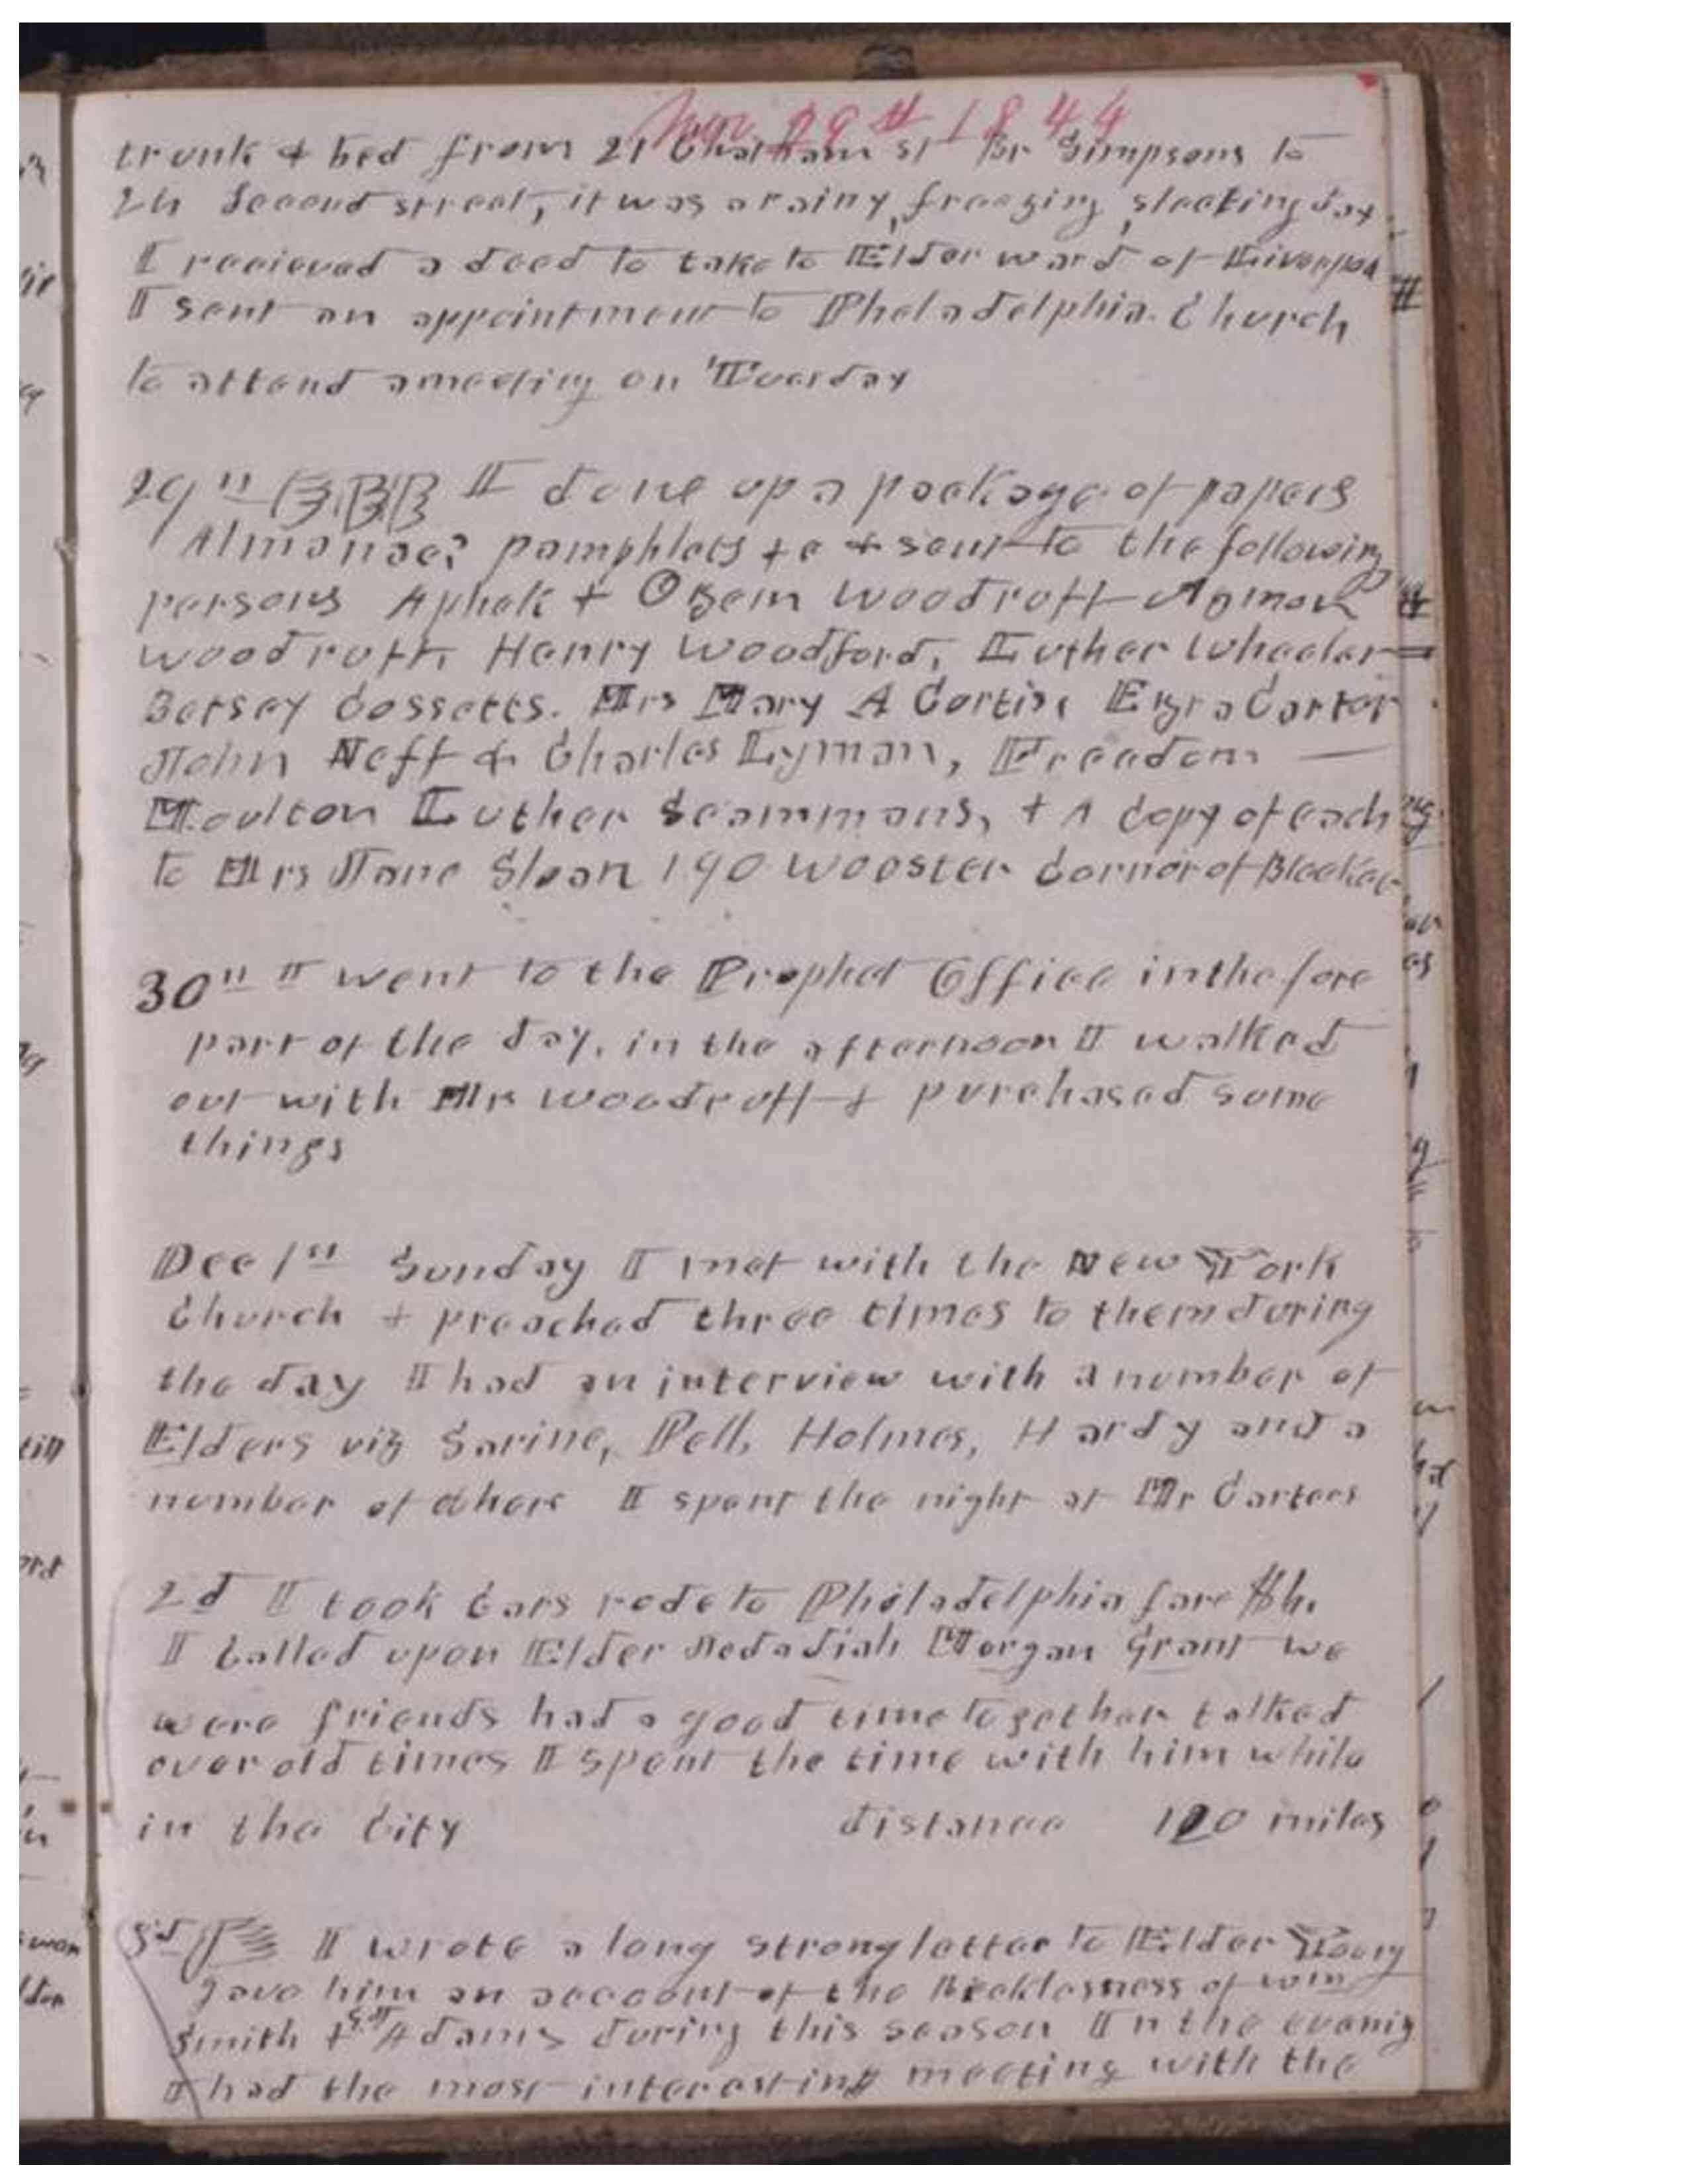 Nov 29th 1844
trunk & bed from 21 Chatham st Br Simpsons to
24 Second street, it was a rainy, freezing, sleeting day.
I recieved a deed to take to Elder ward of Liverpool
I sent an appointment to Pheladelphia Church
to attend a meeting on Tuesday
29th I done up a package of papers
Almanac? pamphlets &c & sent to the following
persons Aphek & Ozem Woodruff Azmon
Woodruff, Henry Woodford, Luther Wheeler
Betsey Cossetts. Mrs Mary A Curtis, Ezra Carter
John Neff & Charles Lyman, Freedom
Moulton Luther Scammans, & A Copy of each
to Mrs Jane Sloan 190 Wooster Corner of Bleeker
30th I went to the Prophet Office in the fore
part of the day, in the afternoon I walked
out with Mrs Woodruff & purchased some
things
Dec 1st Sunday I met with the New York
Church & preached three times to them during
the day I had an interview with a number of
Elders viz Sarine, Pell, Holmes, Hardy and a
number of others I spent the night at Mr Carters
2d I took Cars rode to Philadelphia fare $4.
I Called upon Elder Jedadiah Morgan Grant we
were friends had a good time together talked
over old times I spent the time with him while
in the City distance 100 miles
3d I wrote a long strong letter to Elder Young
gave him an account of the Recklessness of wm
Smith & G J Adams during this season In the evenig
I had the most interesting meeting with the